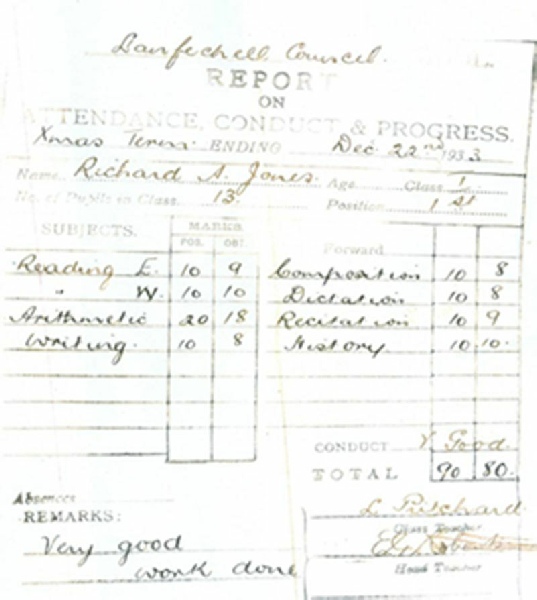 Llanfechell Council.
REPORT
ON
ATTENDANCE, CONDUCT & PROGRESS.
Xmas Term. ENDING Dec. 22nd 1933
Name Richard A. Jones. Age Class 1
No. of Pupils in Class 13. Position 1st
SUBJECTS. MARKS
POS. OBT. Forward
Reading E. 10 9 Composition 10 8
" W. 10 10 Dictation 10 8
Arithmetic 20 18 Recitation 10 9
Writing. 10 8 History 10 10.
CONDUCT V Good.
TOTAL 90 80.
Absences
REMARKS:
Very good
work done
L. Pritchard
Class Teacher
Head Teacher